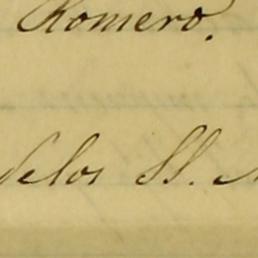 Romero.
delos SS.